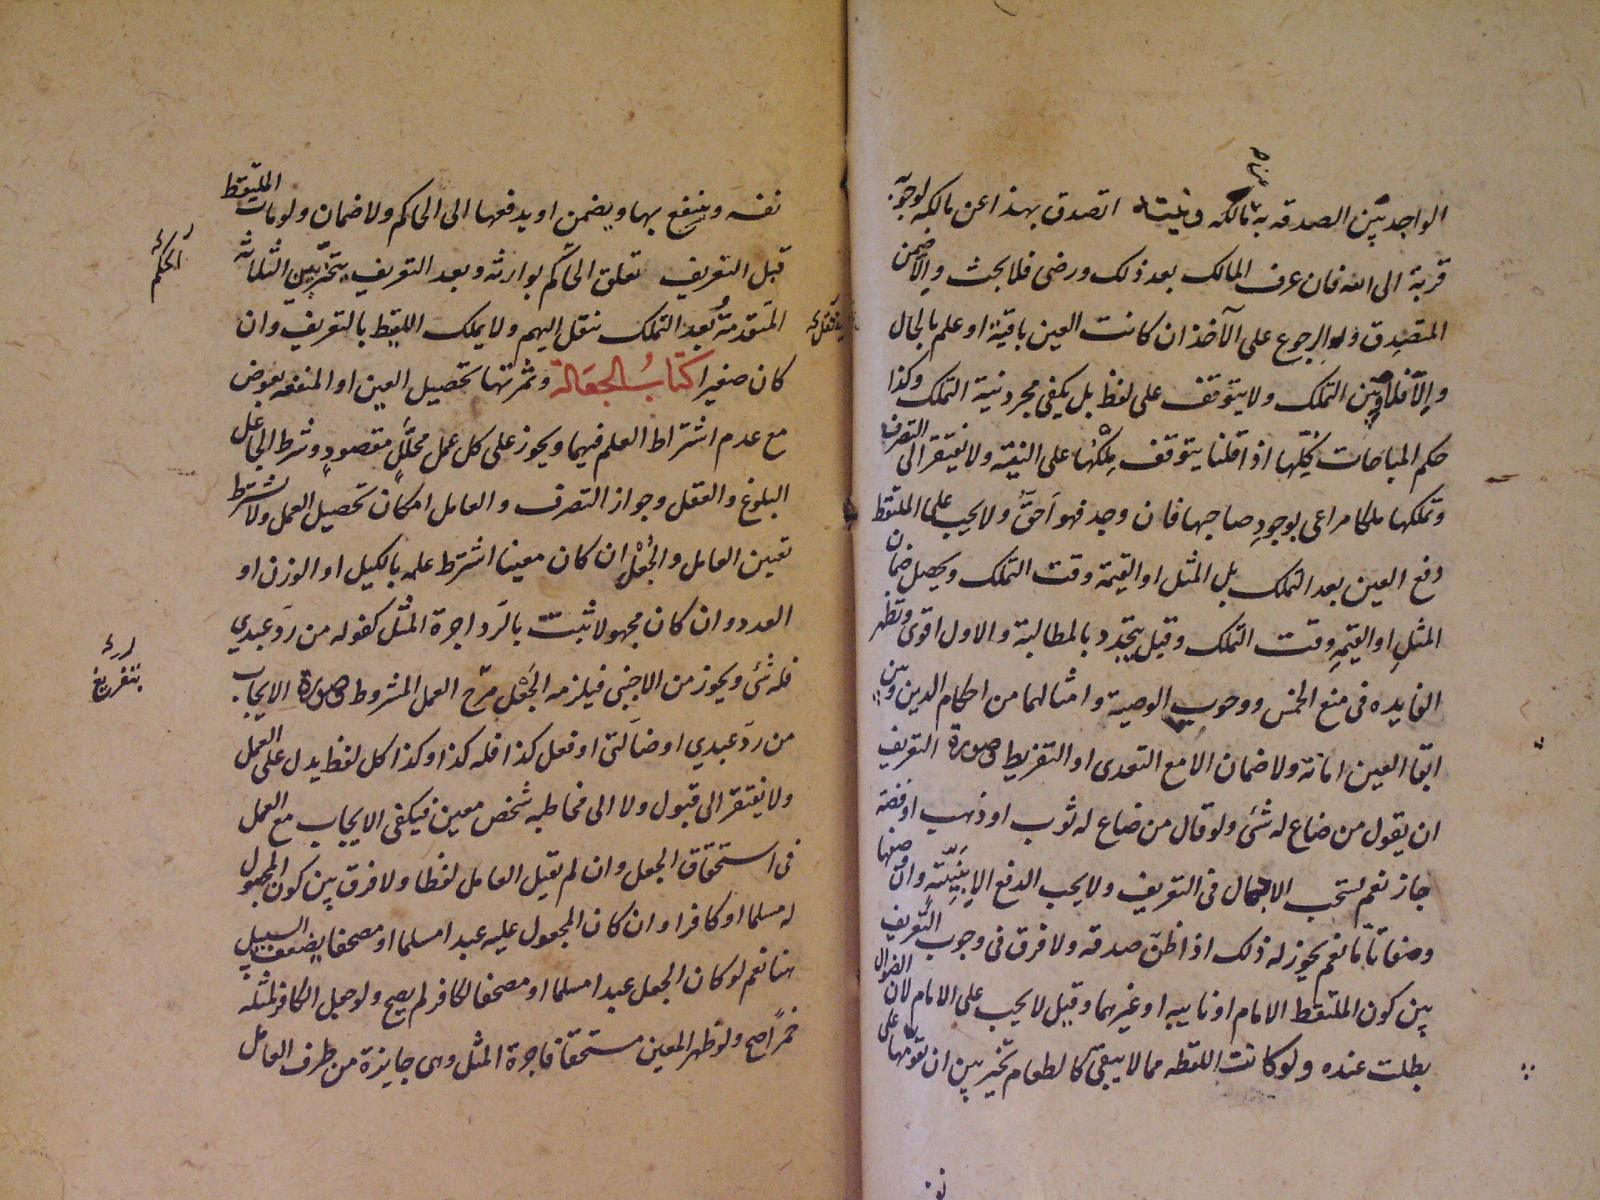 الواجد بين الصدقه به عن مالكه ونيته اتصدق بهذا عن مالكه لوجوبه
قربة الى الله فان عرف المالك بعد ذلك ورضى فلا بحث والا ضمن
المتصدق وله الرجوع على الآخذ ان كانت العين باقية او علم بالحال
والا فلا وبين التملك ولا يتوقف على لفظ بل يكفى مجرد نية التملك وكذا
حكم المباحات كلها اذا قلنا يتوقف ملكها على النية ولا يفتقر الى التصرف
وتملكها ملكا مراعى بوجود صاحبها فان وجد فهو احق ولا يجب على الملتقط
دفع العين بعد التملك بل المثل او القيمة وقت التملك ويحصل ضمان
المثل او القيمه وقت التملك وقيل يتجدد بالمطالبة والاول اقوى وتظهر
الفايده فى منع الخمس ووجوب الوصية وامثالهما من احكام الدين وبين
ابقا العين امانة ولا ضمان الا مع التعدى او التفريط وصورة التعريف
ان يقول من ضاع له شئ ولو قال من ضاع له ثوب او ذهب او فضة
جاز نعم يستحب الاجمال فى التعريف ولا يجب الدفع الا ببينة وان وصفها
وصفا تاما نعم يجوز له ذلك اذا ظن صدقه ولا فرق فى وجوب التعريف
بين كون الملتقط الامام او نايبه او غيرهما وقيل لا يجب على الامام لان الضوال
بطلت عنده ولو كانت اللقطه مما لا يبقى كالطعام تخير بين ان يقومها على
نفسه وينتفع بها ويضمن او يدفعها الى الحاكم ولا ضمان ولو مات الملتقط
قبل التعريف تعلق الحكم بوارثه وبعد التعريف يتخير بين الثلاثة
الحكم
المتقدمة وبعد التملك تنتقل اليهم ولا يملك اللقيط بالتعريف وان
كان صغيرا كتاب الجعالة وثمرتها تحصيل العين او المنفعه بعوض
مع عدم اشتراط العلم فيهما ويجوز على كل عمل محلل مقصود وشرط الجاعل
البلوغ والعقل وجواز التصرف والعامل امكان تحصيل العمل ولا يشترط
تعيين العامل والجعل ان كان معينا اشترط علمه بالكيل او الوزن او
العدد وان كان مجهولا ثبت بالرد اجرة المثل كقوله من رد عبدي
فله شئ ويجوز من الاجنبى فيلزمه الجعل مع العمل المشروط وصورة الايجاب
من رد عبدي او ضالتى او فعل كذا فله كذا وكذا كل لفظ يدل على العمل
ولا يفتقر الى قبول ولا الى مخاطبه شخص معين فيكفى الايجاب مع العمل
فى استحقاق الجعل وان لم يقبل العامل لفظا ولا فرق بين كون المجعول
له مسلما او كافرا وان كان المجعول عليه عبدا مسلما او مصحفا يضعف السبيل
هنا نعم لو كان الجعل عبدا مسلما او مصحفا لكافر لم يصح ولو جعل الكافر لمثله
خمرا صح ولو ظهر المعين مستحقا فاجرة المثل وهى جايزة من طرف العامل